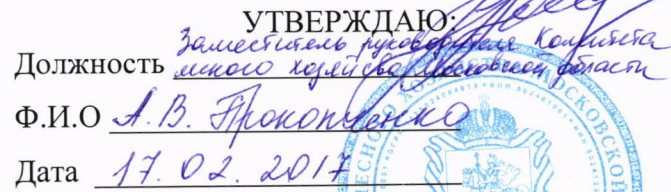 УТВЕРЖДАЮ:
Заместитель руководителя Комитета
Должность лесного хозяйства Московской области
Ф.И.О А.В. Прокопченко
Дата 17.02.2017